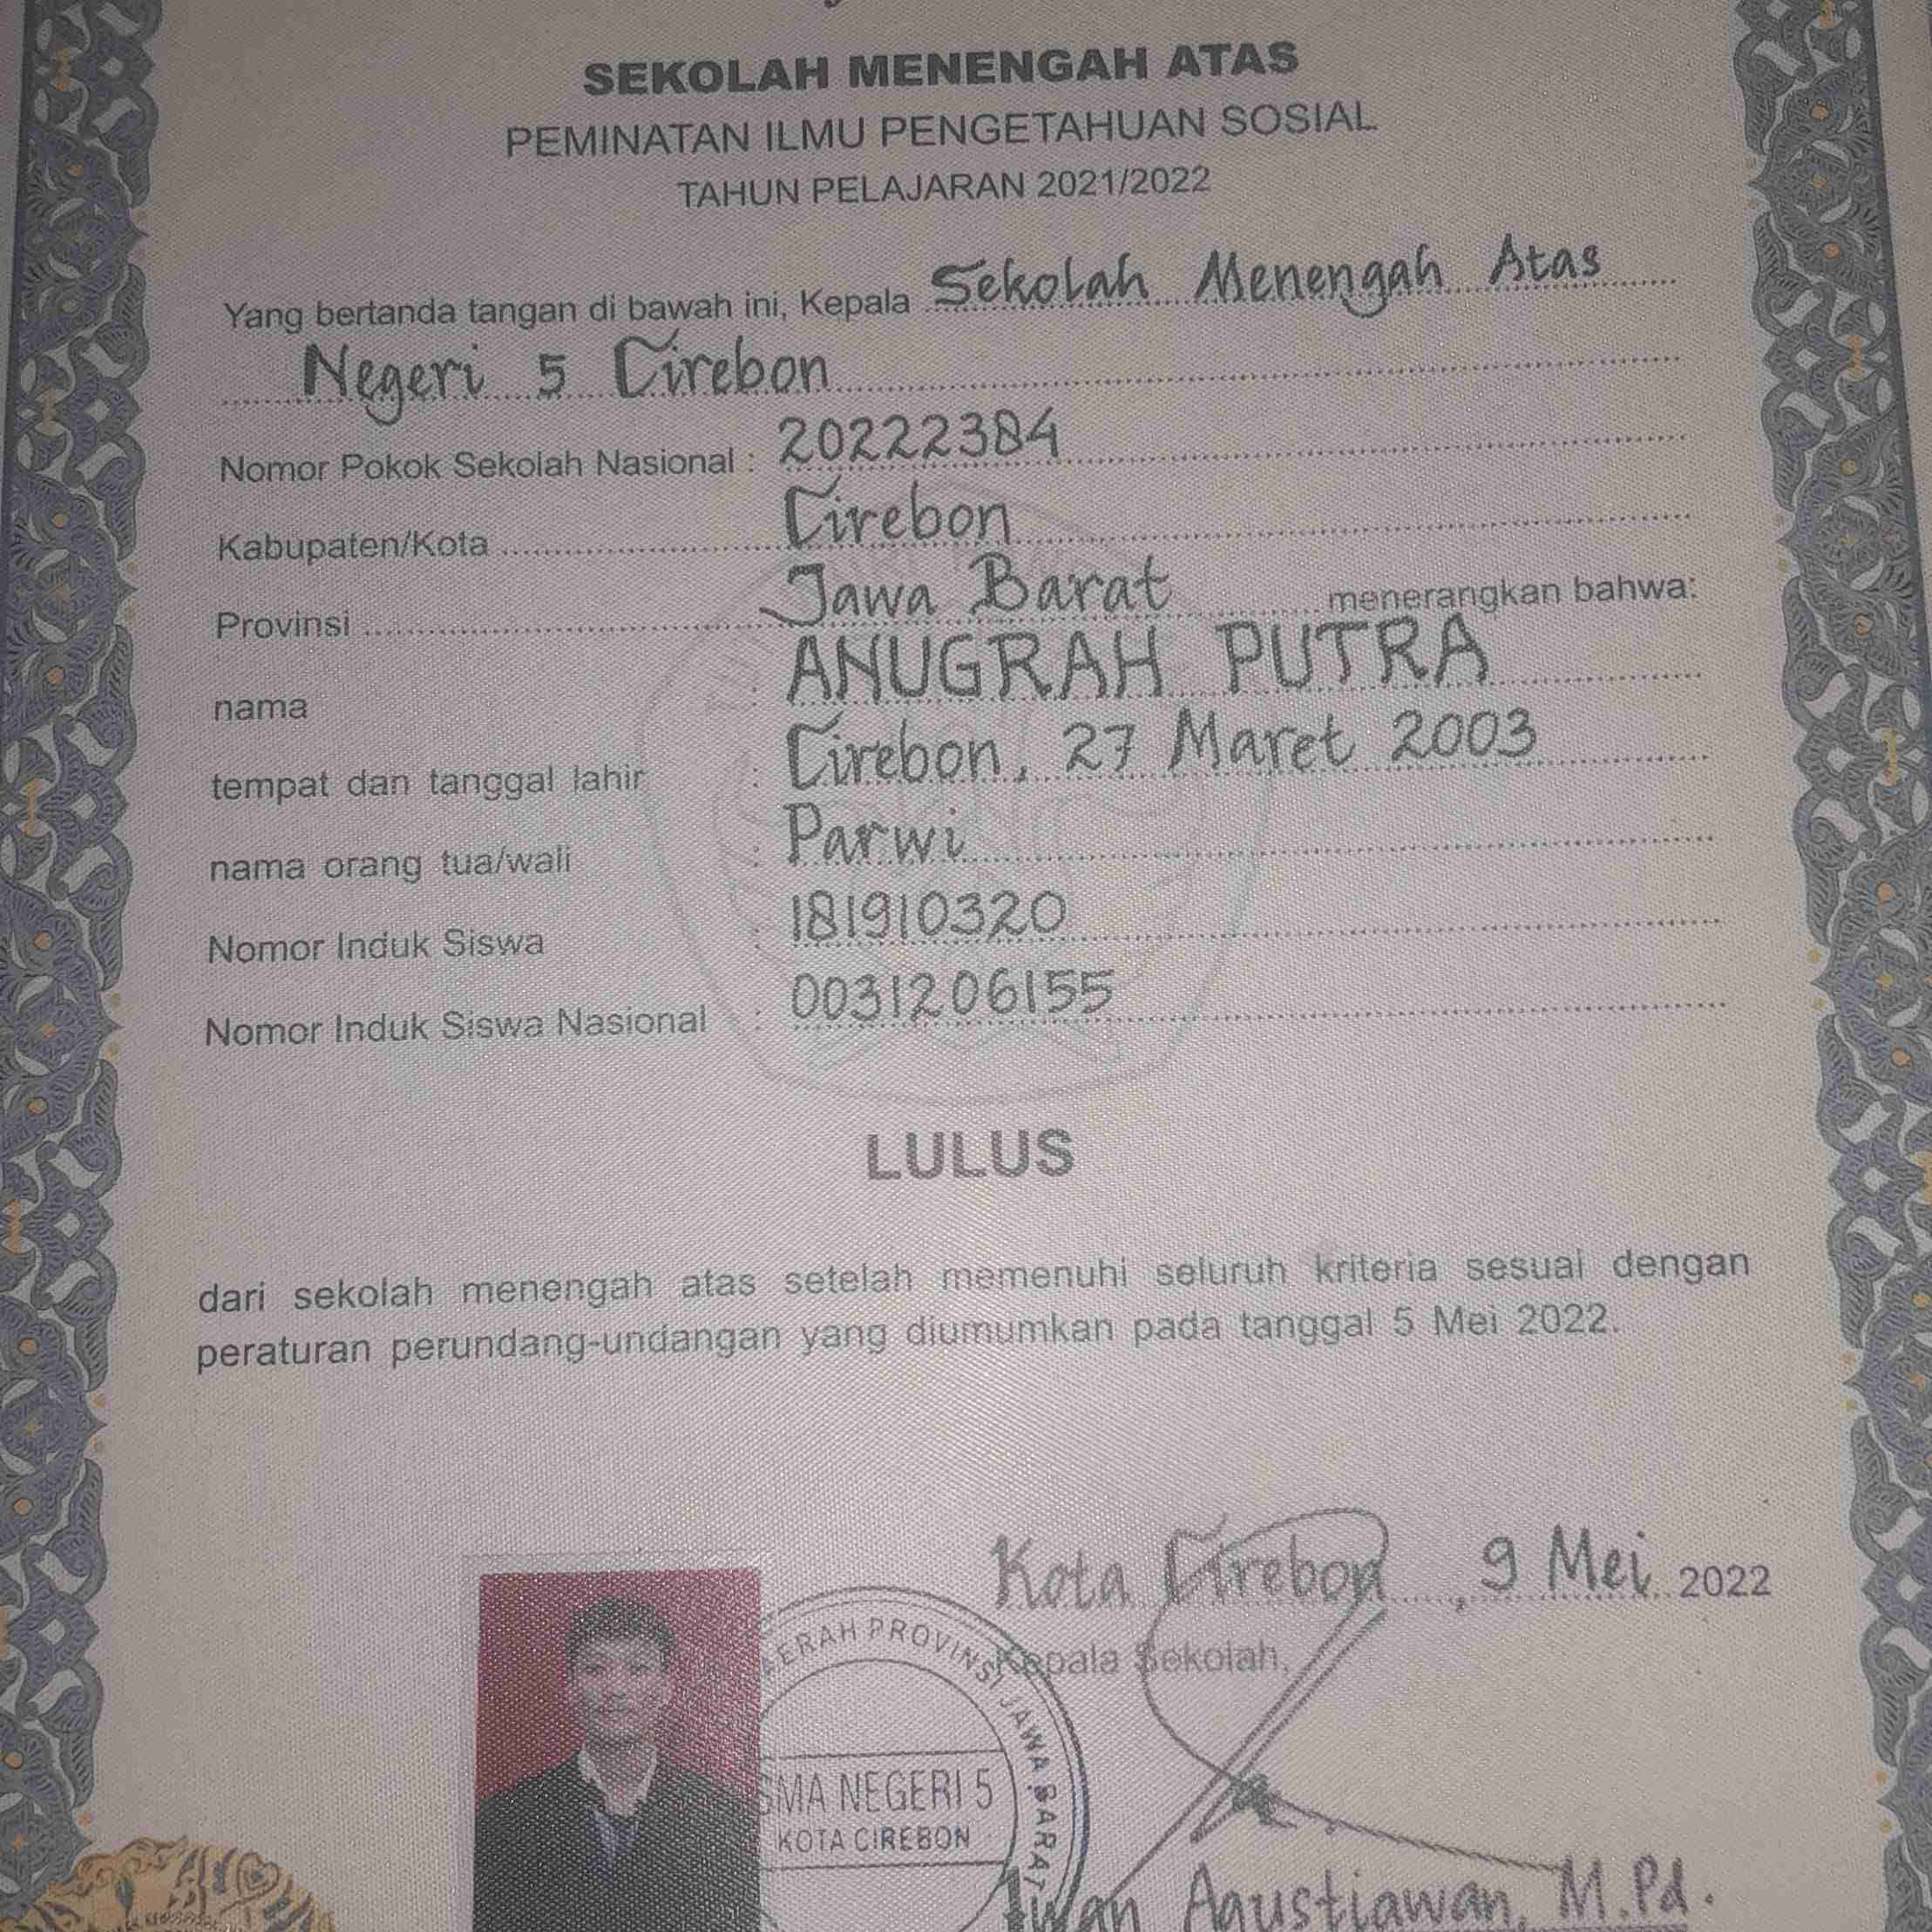 SEKOLAH MENENGAH ATAS
PEMINATAN ILMU PENGETAHUAN SOSIAL
TAHUN PELAJARAN 2021/2022
Yang bertanda tangan di bawah ini, Kepala Sekolah Menengah Atas
Negeri 5 Cirebon
Nomor Pokok Sekolah Nasional : 20222384
Kabupaten/Kota Cirebon
Provinsi Jawa Barat menerangkan bahwa:
nama : ANUGRAH PUTRA
tempat dan tanggal lahir : Cirebon, 27 Maret 2003
nama orang tua/wali : Parwi
Nomor Induk Siswa : 181910320
Nomor Induk Siswa Nasional : 0031206155
LULUS
dari sekolah menengah atas setelah memenuhi seluruh kriteria sesuai dengan
peraturan perundang-undangan yang diumumkan pada tanggal 5 Mei 2022.
Kota Cirebon, 9 Mei 2022
Kepala Sekolah,
ERAH PROVINSI JAWA BARAT
SMA NEGERI 5
KOTA CIREBON
Iwan Agustiawan, M.Pd.